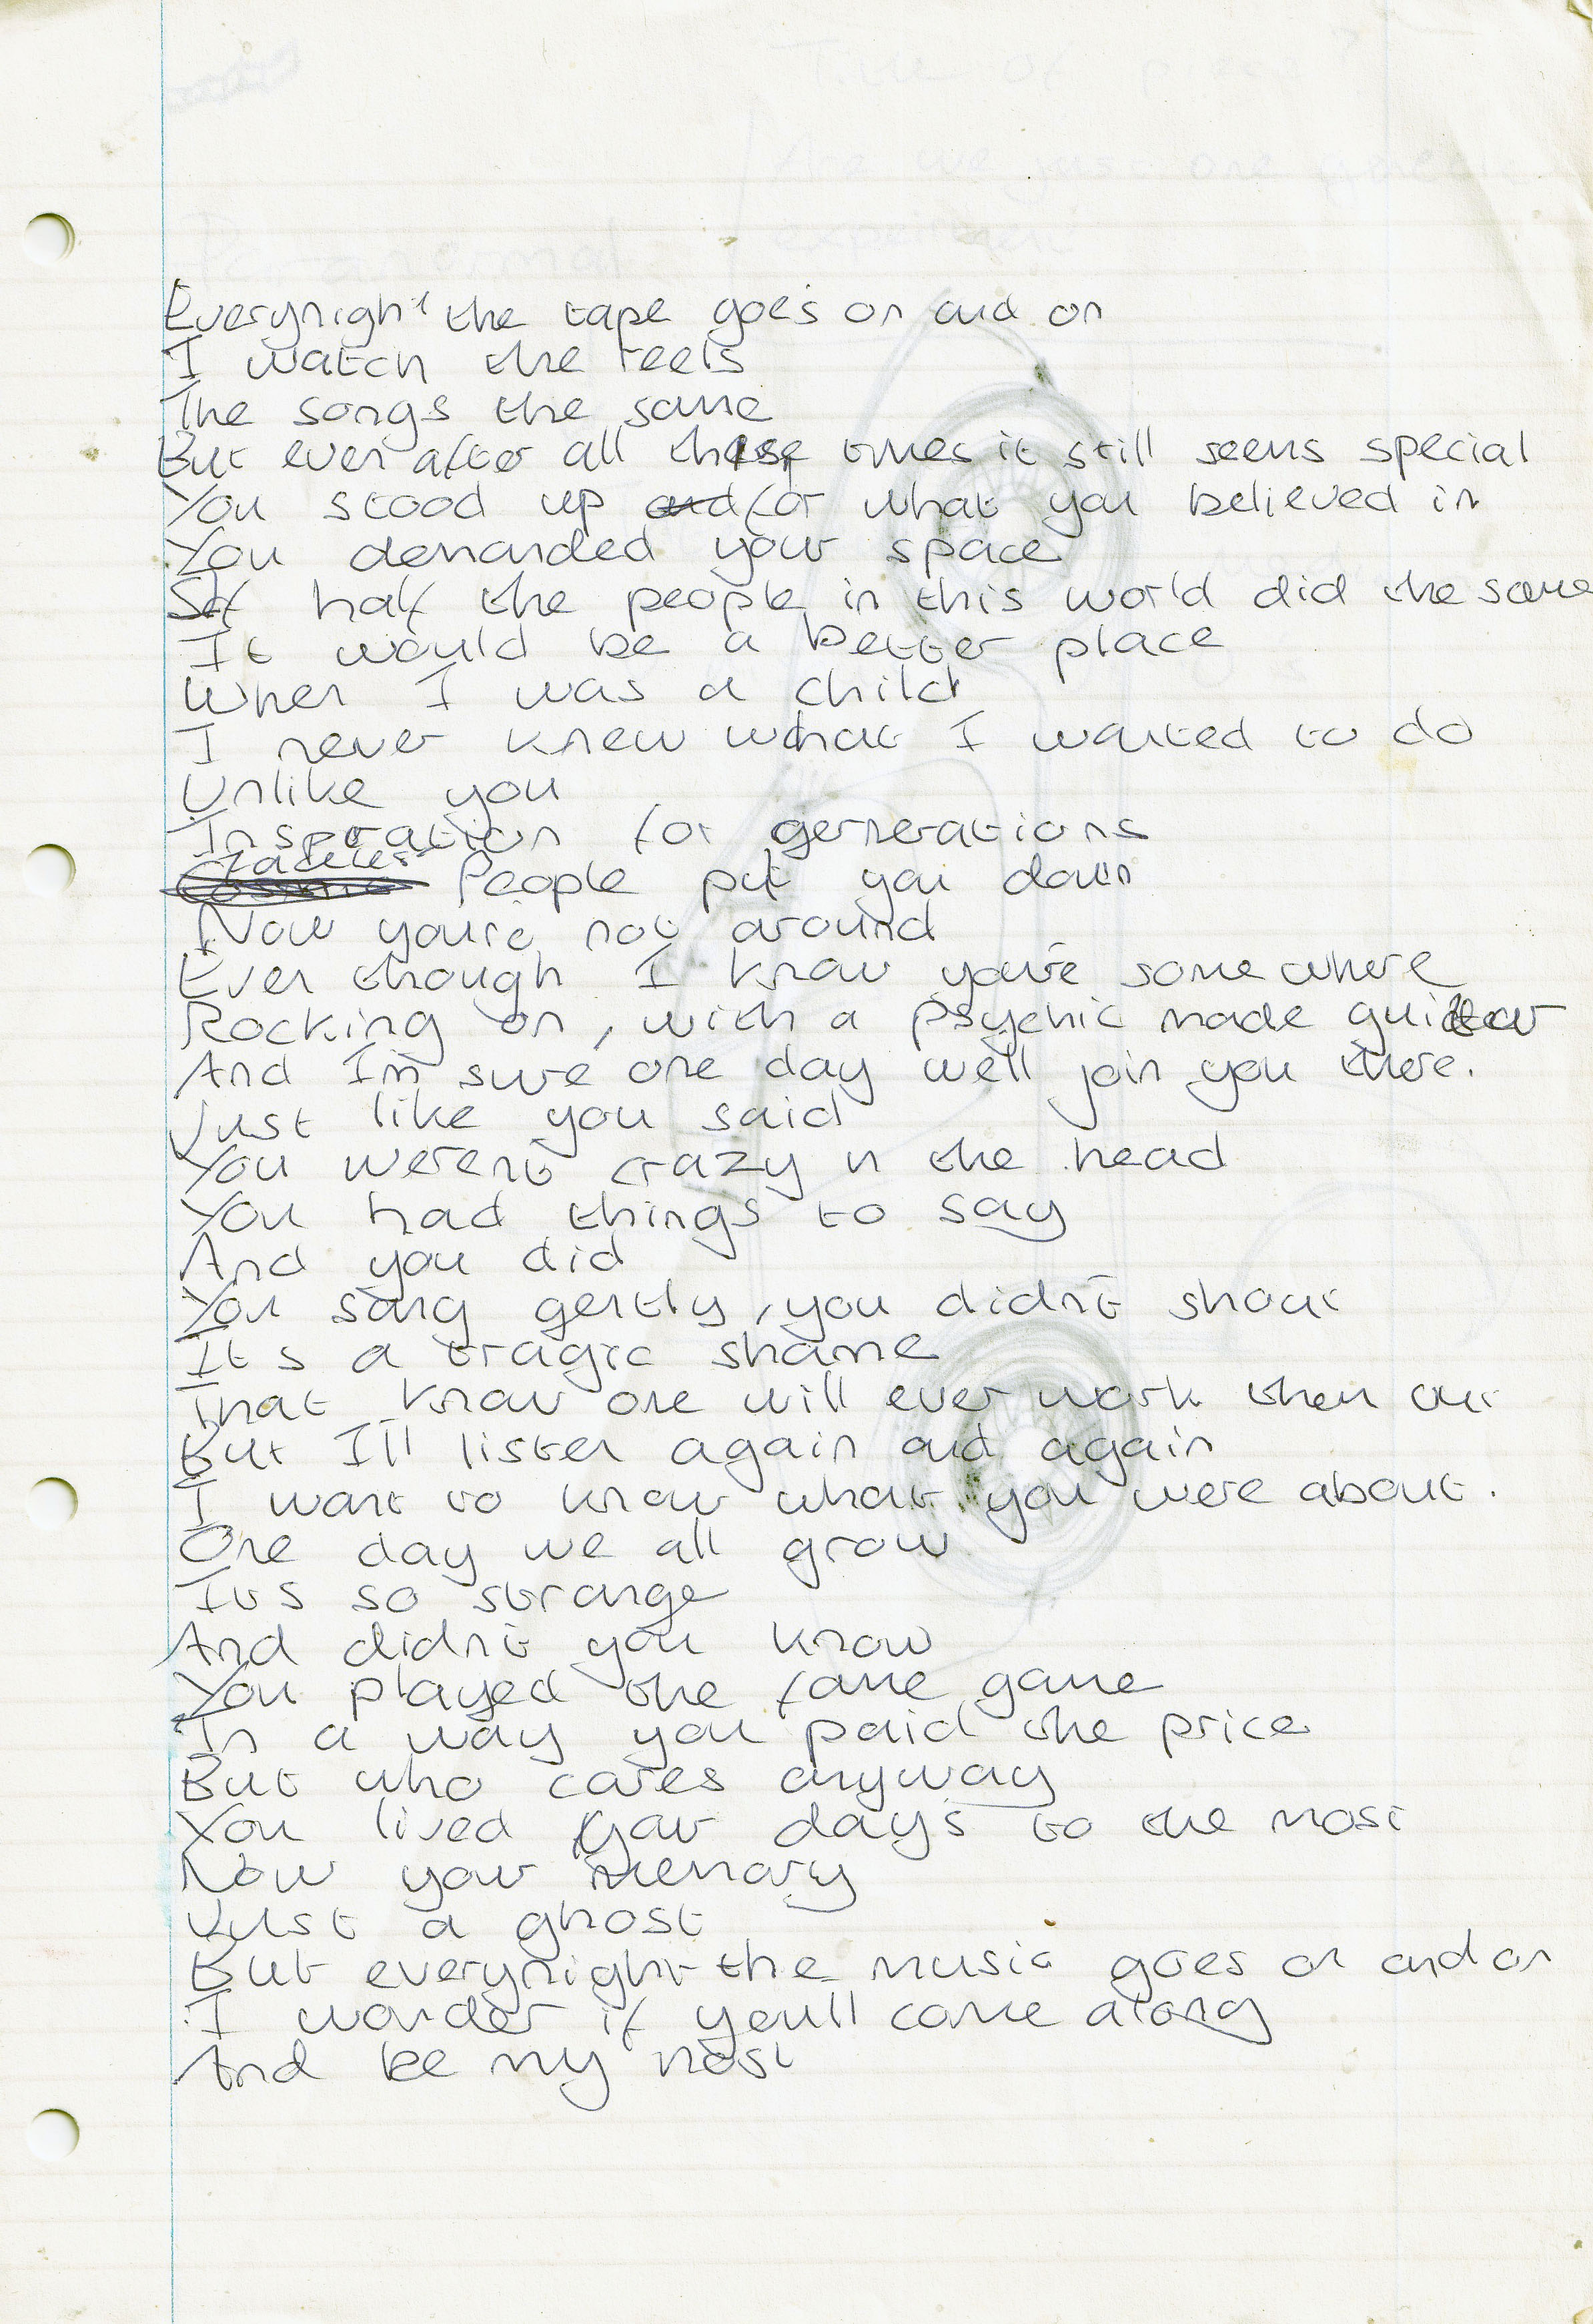 Everynight the tape goes on and on
I watch the reels
The songs the same
But even after all these times it still seems special
You stood up for what you believed in
You demanded your space
If half the people in this world did the same
It would be a better place
When I was a child
I never knew what I wanted to do
Unlike you
Inspiration for generations
People put you down
Now you're not around
Even though I know you're somewhere
Rocking on, with a psychic made guitar
And I'm sure one day we'll join you there.
Just like you said
You weren't crazy n the head
You had things to say
And you did
You sang gently, you didn't shout
It's a tragic shame
That know one will ever work them out
But I'll listen again and again
I want to know what you were about.
One day we all grow
It's so strange
And didn't you know
You played the fame game
In a way you paid the price
But who cares anyway
You lived your days to the most
Now your memory
Just a ghost
But everynight the music goes on and on
I wonder if you'll come along
And be my host